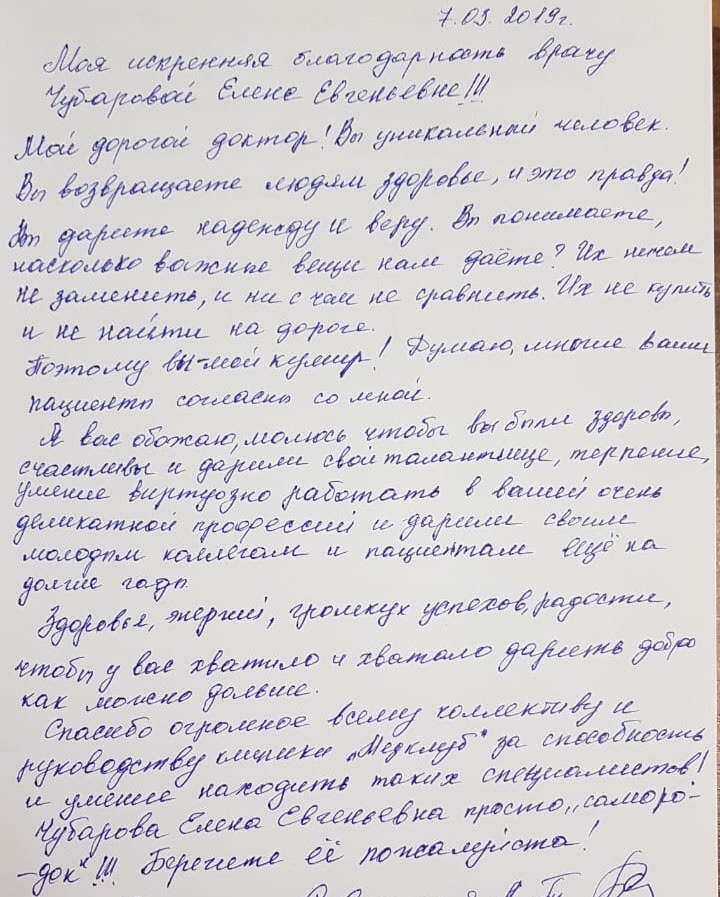 7.03.2019г.
Моя искренняя благодарность врачу
Чубаровой Елене Евгеньевне!!!
Мой дорогой доктор! Вы уникальный человек.
Вы возвращаете людям здоровье, и это правда!
Вы дарите надежду и веру. Вы понимаете,
насколько важные вещи нам даёте? Их ничем
не заменить, и ни с чем не сравнить. Их не купить
и не найти на дороге.
Поэтому вы-мой кумир! Думаю, многие ваши
пациенты согласны со мной.
Я вас обожаю, молюсь чтобы вы были здоровы,
счастливы и дарили свой талантище, терпение,
умение виртуозно работать в вашей очень
деликатной профессий и дарили своим
молодым коллегам и пациентам ещё на
долгие годы
Здоровья, энергий, громких успехов, радости,
чтобы у вас хватило и хватало дарить добро
как можно дольше.
Спасибо огромное всему коллективу и
руководству клиники „Медклуб" за способность
и умение находить таких специалистов!
Чубарова Елена Евгеньевна просто „саморо-
-док" !!! Берегите её пожалуйста!